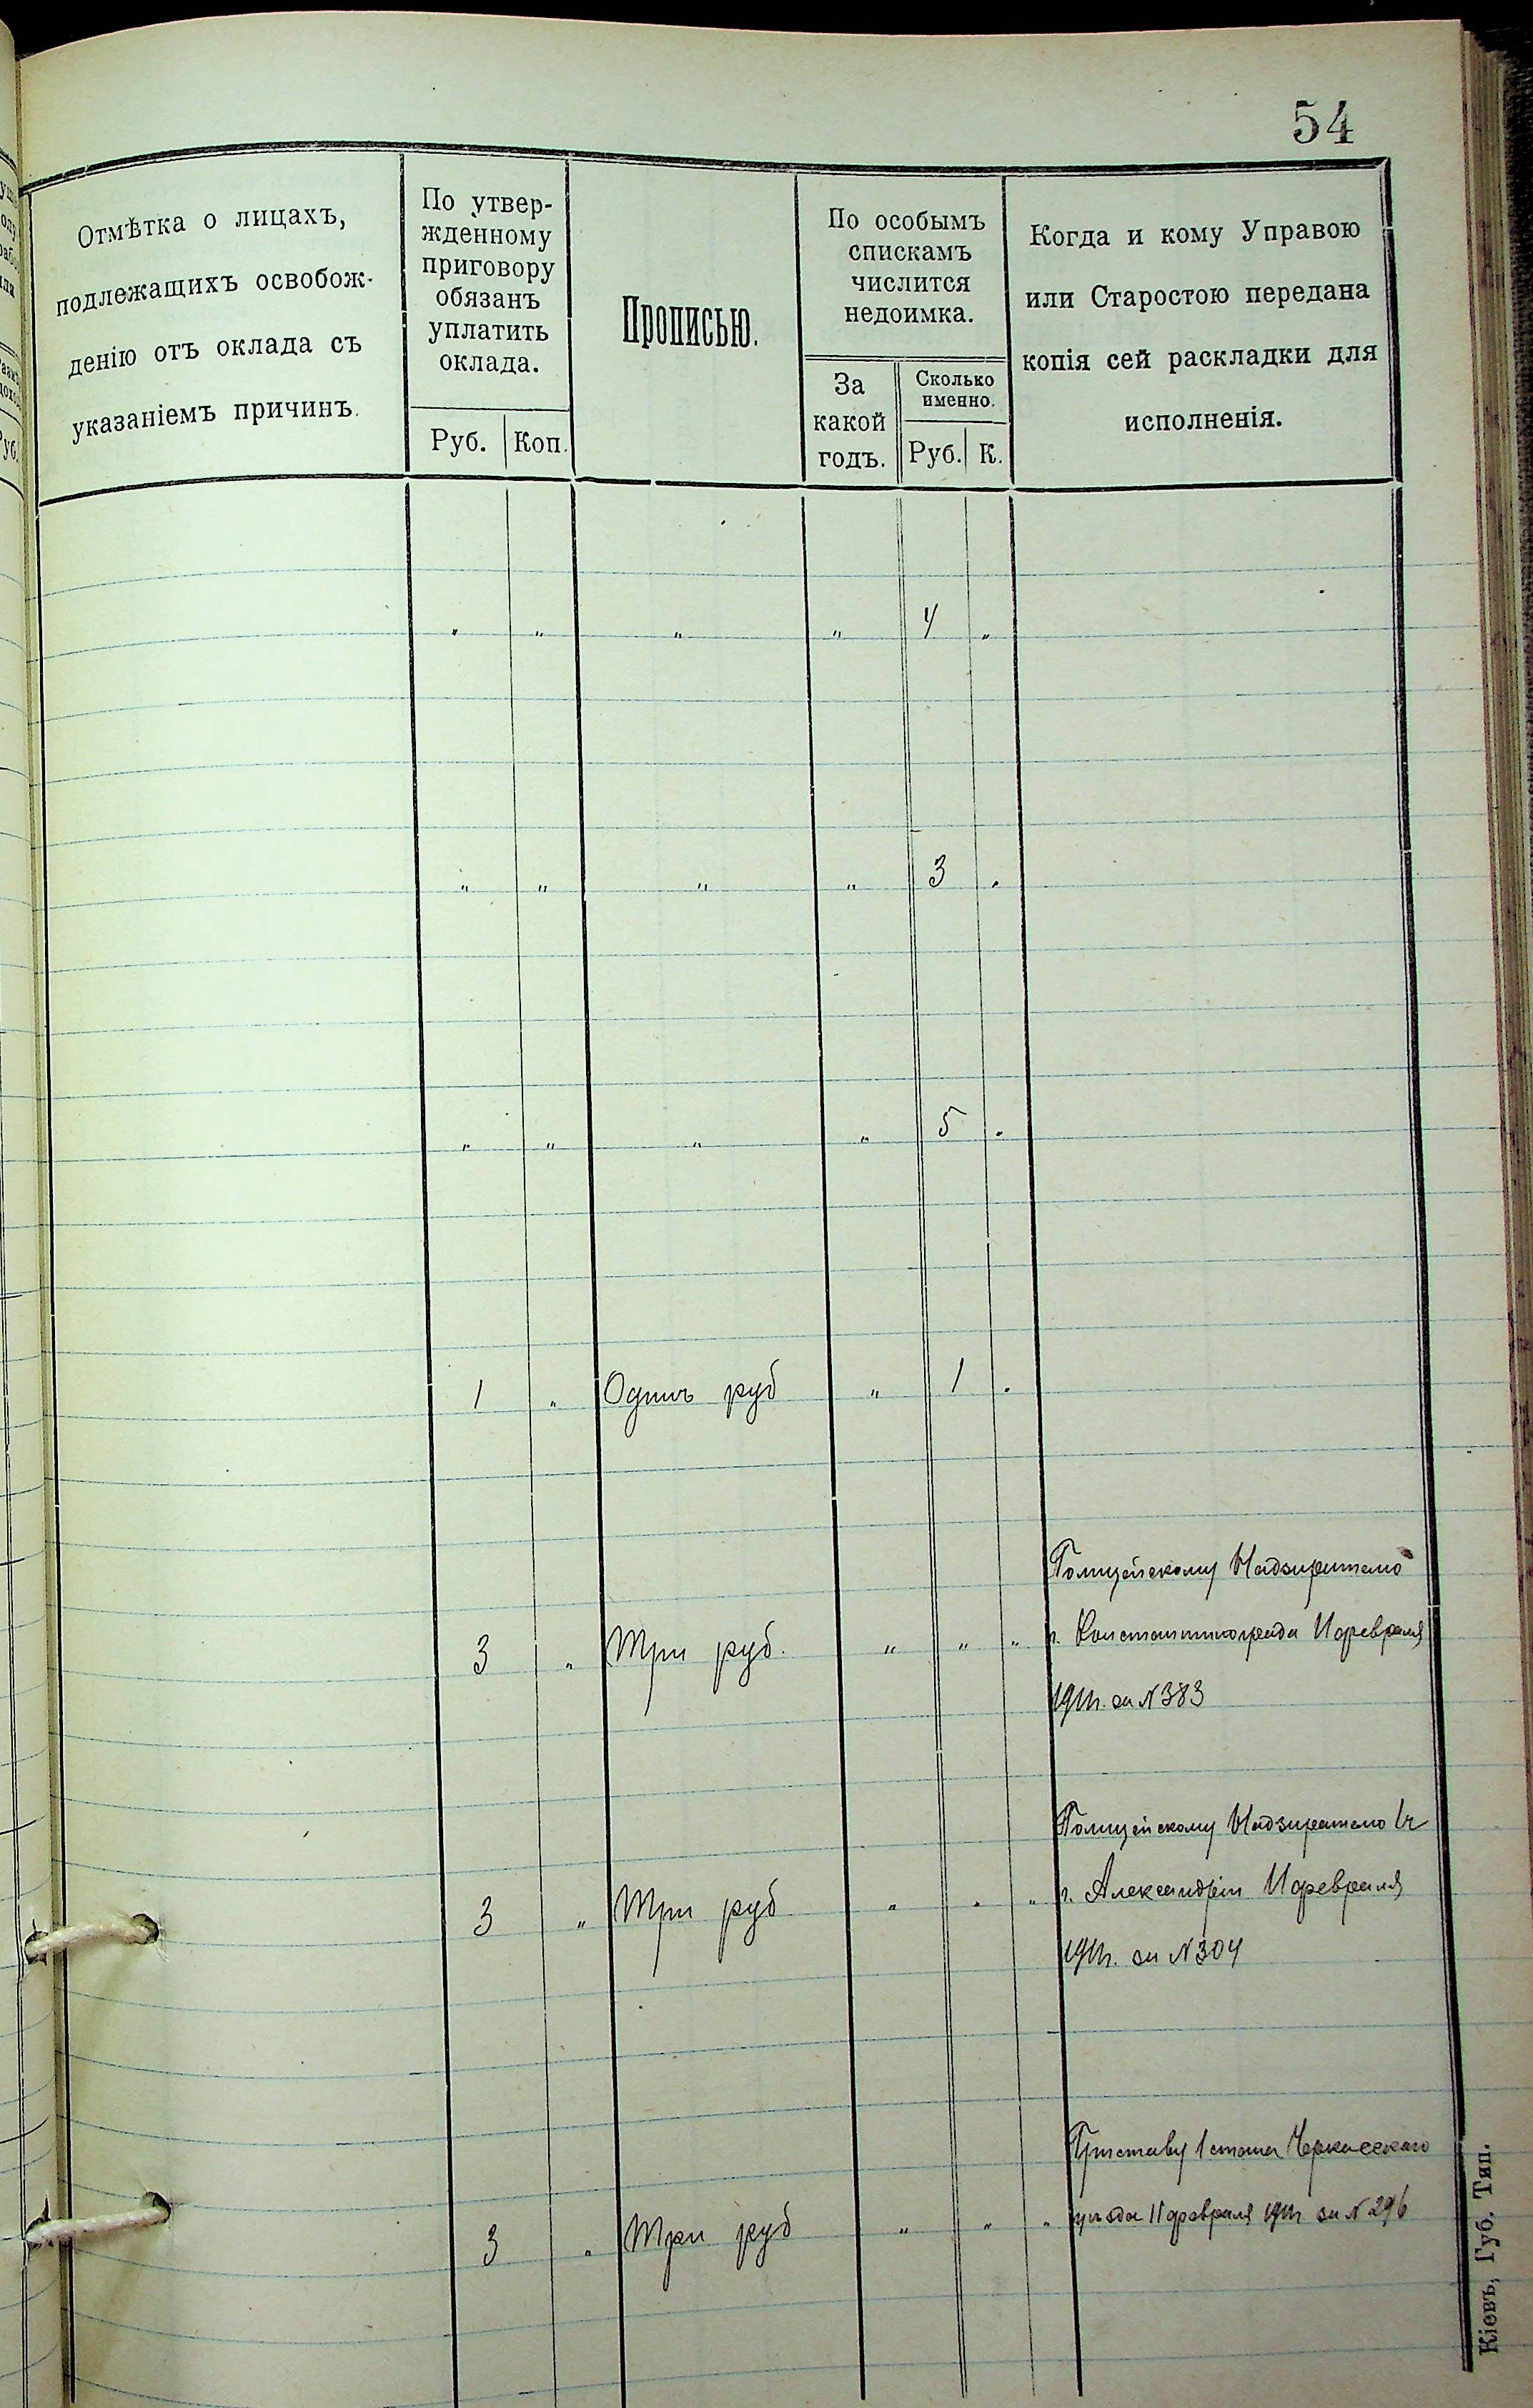 54
Отмѣтка о лицахъ,
подлежащихъ освобож-
денію отъ оклада съ
указаніемъ причинъ.
По утвер-
жденному
приговору
обязанъ
уплатить
оклада.
Руб. Коп.
Прописью.
По особымъ
спискамъ
числится
недоимка.
За
какой
годъ.
Сколько
именно.
Руб. К.
Когда и кому Управою
или Старостою передана
копія сей раскладки для
исполненія.
„ „ „ „ 4 „
„ „ „ „ 3 „
„ „ „ „ 5 „
1 „ Одинъ руб „ 1 „
Полицейскому Надзирателю
3 „ Три руб. „ „ „ г. Константинограда 11 февраля
1911г. за N 383
Полицейскому Надзирателю
3 „ Три руб „ „ „ г. Александріи 11 февраля
1911г. за N 304
Приставу 1 стана Черкасскаго
3 „ Три руб „ „ „ уѣзда 11 февраля 1911г за N 296
Кіевъ, Губ. Тип.